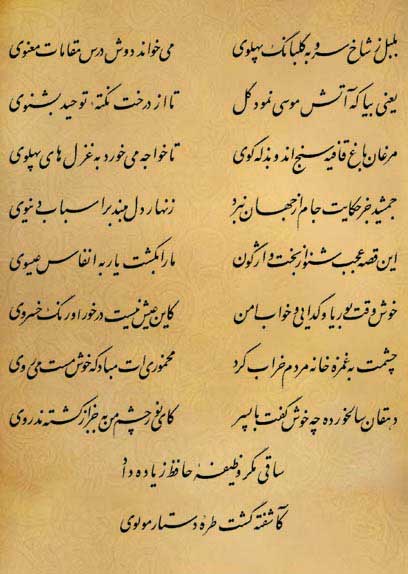 بلبل ز شاخ سرو به گلبانگ پهلوی می‌خواند دوش درس مقامات معنوی
یعنی بیا که آتش موسی نمود گل تا از درخت نکتهٔ توحید بشنوی
مرغان باغ قافیه سنجند و بذله گوی تا خواجه می خورد به غزل های پهلوی
جمشید جز حکایت جام از جهان نبرد زنهار دل مبند بر اسباب دنیوی
این قصه عجب شنو از بخت واژگون ما را بکشت یار به انفاس عیسوی
خوش وقت بوریا و گدایی و خواب امن کاین عیش نیست در خور اورنگ خسروی
چشمت به غمزه خانه مردم خراب کرد مخموری ات مباد که خوش مست می روی
دهقان سالخورده چه خوش گفت با پسر کای نور چشم من به جز از کشته ندروی
ساقی مگر وظیفهٔ حافظ زیاده داد
کآشفته گشت طرهٔ دستار مولوی